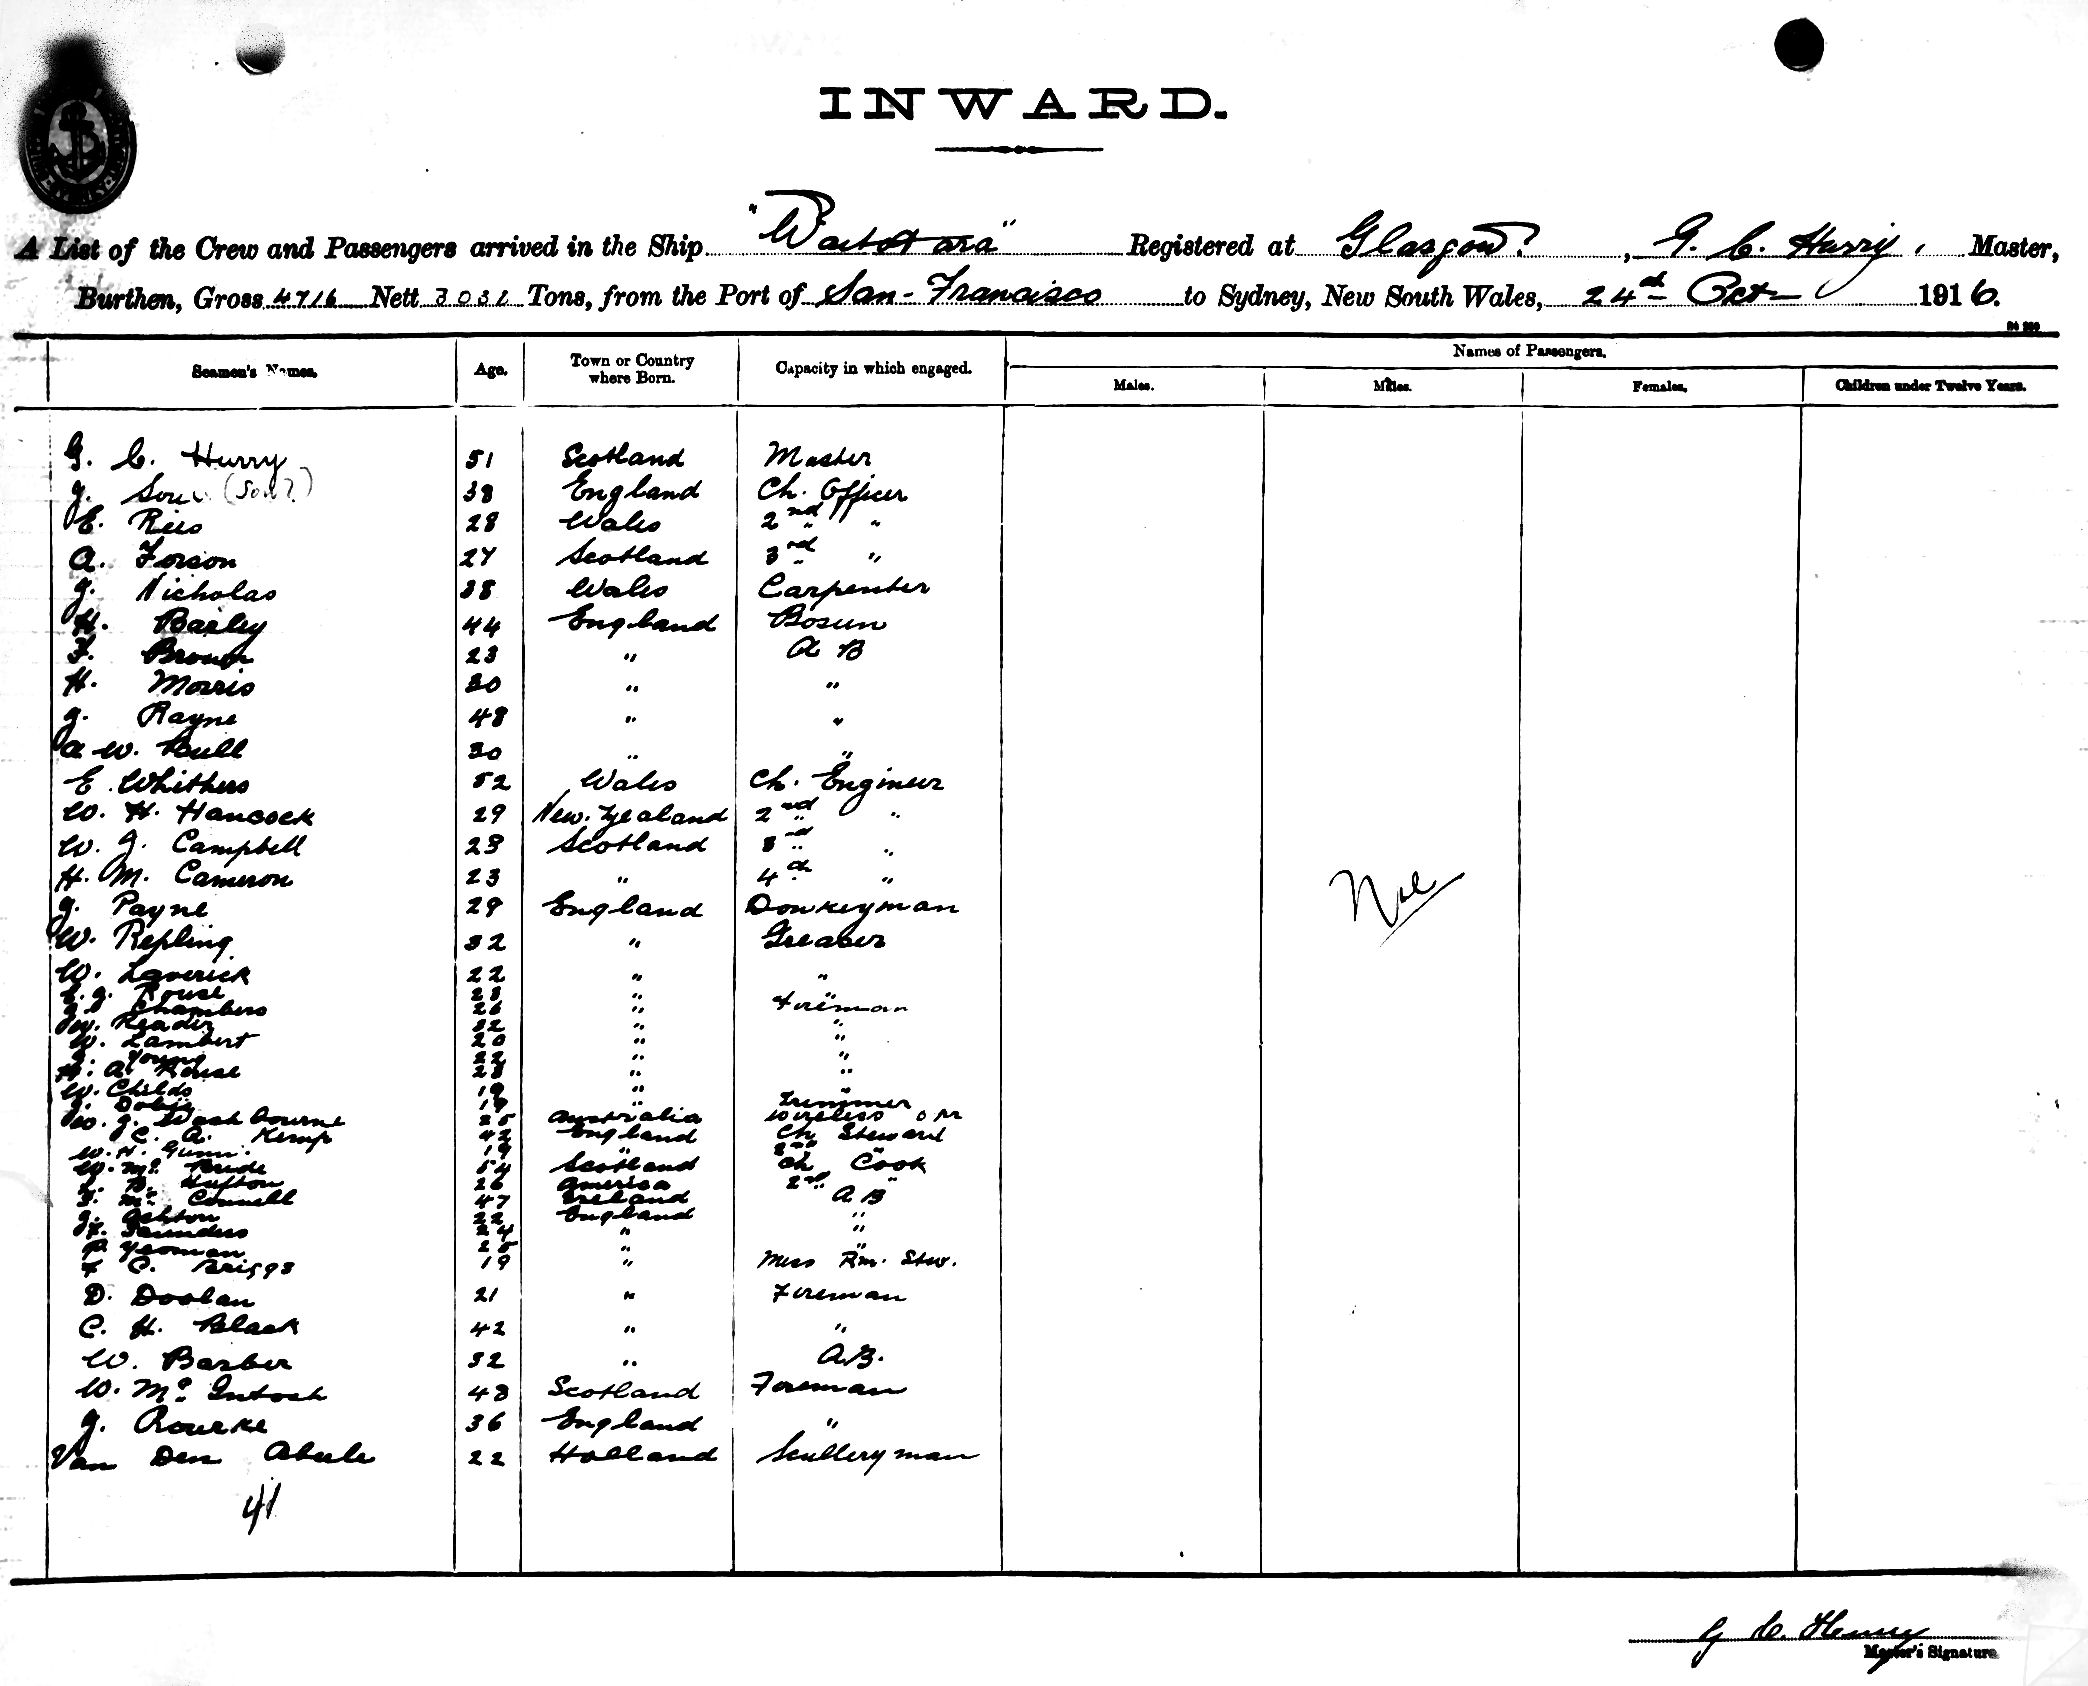 INWARD.
A List of the Crew and Passengers arrived in the Ship "Waitotara" Registered at Glasgow, G. C. Hurry, Master,
Burthen, Gross 4716 Nett 3031 Tons, from the Port of San-Francisco to Sydney, New South Wales, 24th Oct 1916.
Seamen's Names. Age. Town or Country where Born. Capacity in which engaged. Names of Passengers.
Males. Males. Females. Children under Twelve Years.
G. C. Hurry 51 Scotland Master
J. (Son?) 38 England Ch. Officer
E. Rees 28 Wales 2nd " "
A. Forson 27 Scotland 3rd " "
J. Nicholas 38 Wales Carpenter
H. Bailey 44 England Bosun
F. Brown 23 " A B
H. Morris 30 " "
J. Rayne 48 " "
A W. Bull 30 " "
E. Whithers 52 Wales Ch. Engineer
W. H. Hancock 29 New. Zealand 2nd " "
W. J. Campbell 23 Scotland 3rd " "
H. M. Cameron 23 " 4th " "
J. Payne 29 England Donkeyman
W. Repling 32 " Greaser
W. Laverick 22 " "
J. Rouse 28 " "
Chambers 26 " Fireman
W. Reader 32 " "
W. Lambert 20 " "
J. Young 22 " "
H. A. Rouse 28 " "
W. Childs 19 " "
J. Dobie 19 " Trimmer
W. J. Washbourne 25 Australia Wireless opr
C. A. Kemp 42 England Ch Steward
W. H. Gunn. 19 " 2nd "
W. Mc Bride 54 Scotland Ch Cook
L. B. Hufton 26 America 2nd "
F. Mc Connell 47 Ireland A B
J. Ashton 22 England "
H. Saunders 24 " "
P. Yeoman 25 " "
F C. Briggs 19 " Mess Rm. Stw.
D. Doolan 21 " Fireman
C. H. Black 42 " "
W. Barber 32 " A.B.
W. Mc Intosh 43 Scotland Fireman
J. Rourke 36 England "
Van Den Abeele 22 Holland Sculleryman
Nil
41
G C. Hurry
Master's Signature.